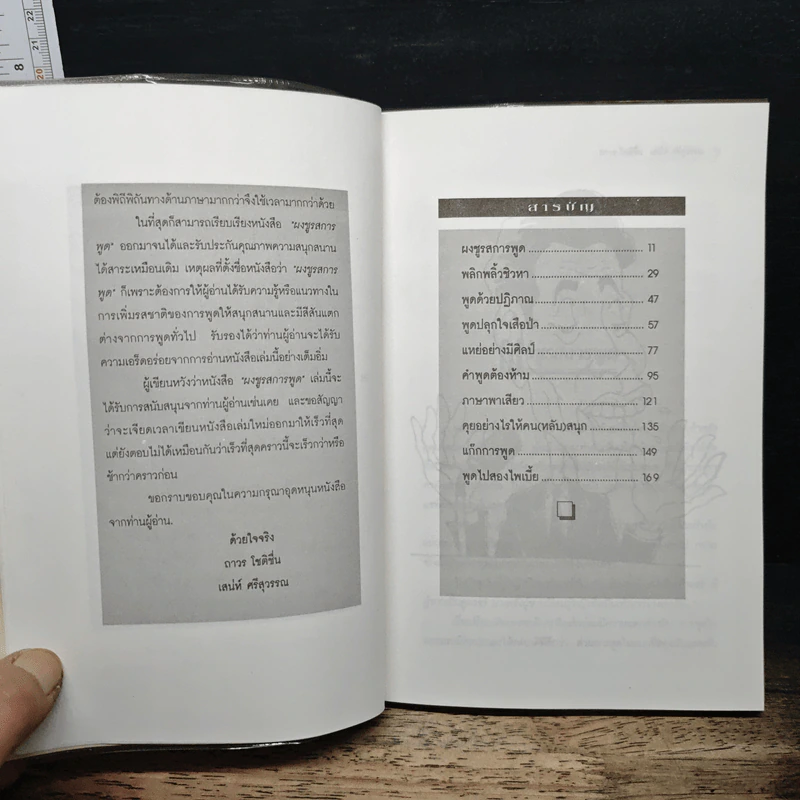 ต้องพิถีพิถันทางด้านภาษามากกว่าจึงใช้เวลามากกว่าด้วย
ในที่สุดก็สามารถเรียบเรียงหนังสือ "ผงชูรสการ
พูด" ออกมาจนได้และรับประกันคุณภาพความสนุกสนาน
ได้สาระเหมือนเดิม เหตุผลที่ตั้งชื่อหนังสือว่า "ผงชูรสการ
พูด" ก็เพราะต้องการให้ผู้อ่านได้รับความรู้หรือแนวทางใน
การเพิ่มรสชาติของการพูดให้สนุกสนานและมีสีสันแตก
ต่างจากการพูดทั่วไป รับรองได้ว่าท่านผู้อ่านจะได้รับ
ความเอร็ดอร่อยจากการอ่านหนังสือเล่มนี้อย่างเต็มอิ่ม
ผู้เขียนหวังว่าหนังสือ "ผงชูรสการพูด" เล่มนี้จะ
ได้รับการสนับสนุนจากท่านผู้อ่านเช่นเคย และขอสัญญา
ว่าจะเจียดเวลาเขียนหนังสือเล่มใหม่ออกมาให้เร็วที่สุด
แต่ยังตอบไม่ได้เหมือนกันว่าเร็วที่สุดคราวนี้จะเร็วกว่าหรือ
ช้ากว่าคราวก่อน
ขอกราบขอบคุณในความกรุณาอุดหนุนหนังสือ
จากท่านผู้อ่าน.
ด้วยใจจริง
ถาวร โชติชื่น
เสน่ห์ ศรีสุวรรณ
สารบัญ
ผงชูรสการพูด 11
พลิกพลิ้วชิวหา 29
พูดด้วยปฏิภาณ 47
พูดปลุกใจเสือป่า 57
แหย่อย่างมีศิลป์ 77
คำพูดต้องห้าม 95
ภาษาพาเสียว 121
คุยอย่างไรให้คน(หลับ)สนุก 135
แก๊กการพูด 149
พูดไปสองไพเบี้ย 169
8
22
21
20